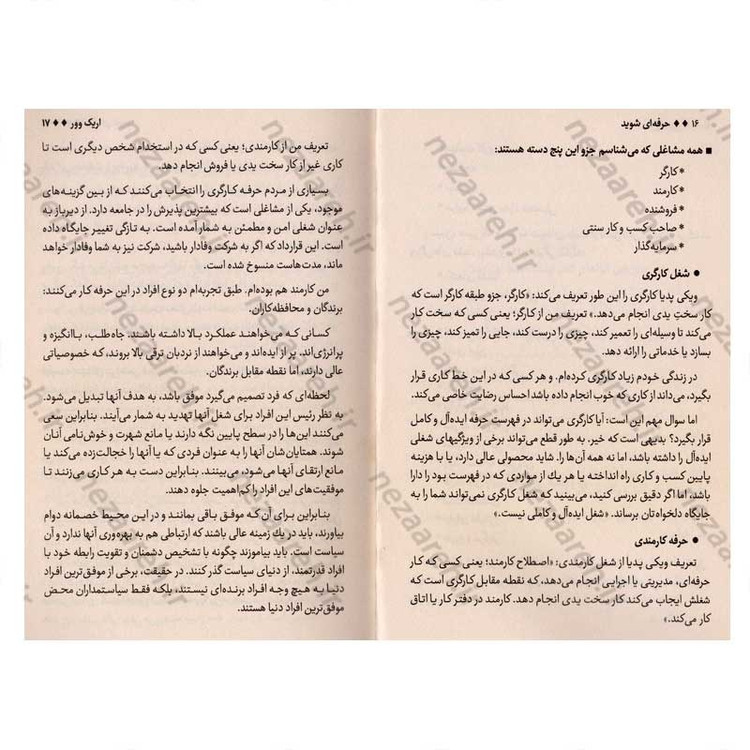 ۱۶ ♦♦ حرفه‌ای شوید
■ همه مشاغلی که می‌شناسم جزو این پنج دسته هستند:
*کارگر
*کارمند
*فروشنده
*صاحب کسب و کار سنتی
*سرمایه‌گذار
● شغل کارگری
ویکی پدیا کارگری را این طور تعریف می‌کند: «کارگر، جزو طبقه کارگر است که
کار سختِ یدی انجام می‌دهد.» تعریف من از کارگر؛ یعنی کسی که سخت کار
می‌کند تا وسیله‌ای را تعمیر کند، چیزی را درست کند، جایی را تمیز کند، چیزی را
بسازد یا خدماتی را ارائه دهد.
در زندگی خودم زیاد کارگری کرده‌ام. و هر کسی که در این خط کاری قرار
بگیرد، می‌داند از کاری که خوب انجام داده باشد احساس رضایت خاصی می‌کند.
اما سوال مهم این است: آیا کارگری می‌تواند در فهرست حرفه ایده‌آل و کامل
قرار بگیرد؟ بدیهی است که خیر. به طور قطع می‌تواند برخی از ویژگیهای شغلی
ایده‌آل را داشته باشد، اما نه همه آن‌ها را. شاید محصولی عالی دارد، یا با هزینه
پایین کسب و کاری راه انداخته یا هر یک از مواردی که در فهرست بود را دارا
باشد، اما اگر دقیق بررسی کنید، می‌بینید که شغل کارگری نمی‌تواند شما را به
جایگاه دلخواه‌تان برساند. «شغل ایده‌آل و کاملی نیست.»
● حرفه کارمندی
تعریف ویکی پدیا از شغل کارمندی: «اصطلاح کارمند؛ یعنی کسی که کار
حرفه‌ای، مدیریتی یا اجرایی انجام می‌دهد، که نقطه مقابل کارگری است که
شغلش ایجاب می‌کند کار سخت یدی انجام دهد. کارمند در دفتر کار یا اتاق
کار می‌کند.»
اریک وور ♦♦ ۱۷
تعریف من از کارمندی؛ یعنی کسی که در استخدام شخص دیگری است تا
کاری غیر از کار سخت یدی یا فروش انجام دهد.
بسیاری از مردم حرفه کارگری را انتخاب می‌کنند که از بین گزینه‌های
موجود، یکی از مشاغلی است که بیشترین پذیرش را در جامعه دارد. از دیرباز به
عنوان شغلی امن و مطمئن به شمار آمده است. به تازگی تغییر جایگاه داده
است. این قرارداد که اگر به شرکت وفادار باشید، شرکت نیز به شما وفادار خواهد
ماند، مدت‌هاست منسوخ شده است.
من کارمند هم بوده‌ام. طبق تجربه‌ام دو نوع افراد در این حرفه کار می‌کنند:
برندگان و محافظه‌کاران.
کسانی که می‌خواهند عملکرد بالا داشته باشند. جاه‌طلب، باانگیزه و
پرانرژی‌اند. پر از ایده‌اند و می‌خواهند از نردبان ترقی بالا بروند، که خصوصیاتی
عالی دارند، اما نقطه مقابل برندگان.
لحظه‌ای که فرد تصمیم می‌گیرد موفق باشد، به هدف آنها تبدیل می‌شود.
به نظر رئیس این افراد برای شغل آنها تهدید به شمار می‌آیند. بنابراین سعی
می‌کنند این‌ها را در سطح پایین نگه دارند یا مانع شهرت و خوش‌نامی آنان
شوند. همتایان‌شان آنها را به عنوان فردی که یا آنها را خجالت‌زده می‌کند یا
مانع ارتقای آنها می‌شود، می‌بینند. بنابراین دست به هر کاری می‌زنند تا
موفقیت‌های این افراد را کم‌اهمیت جلوه دهند.
بنابراین برای آن که موفق باقی بمانند و در این محیط خصمانه دوام
بیاورند، باید در یک زمینه عالی باشند که ارتباطی هم به بهره‌وری آنها ندارد و آن
سیاست است. باید بیاموزند چگونه با تشخیص دشمنان و تقویت رابطه خود با
افراد قدرتمند، از دنیای سیاست گذر کنند. در حقیقت، برخی از موفق‌ترین افراد
دنیا به هیچ وجه افراد برنده‌ای نیستند، بلکه فقط سیاستمداران محض
موفق‌ترین افراد دنیا هستند.
nezaareh.ir